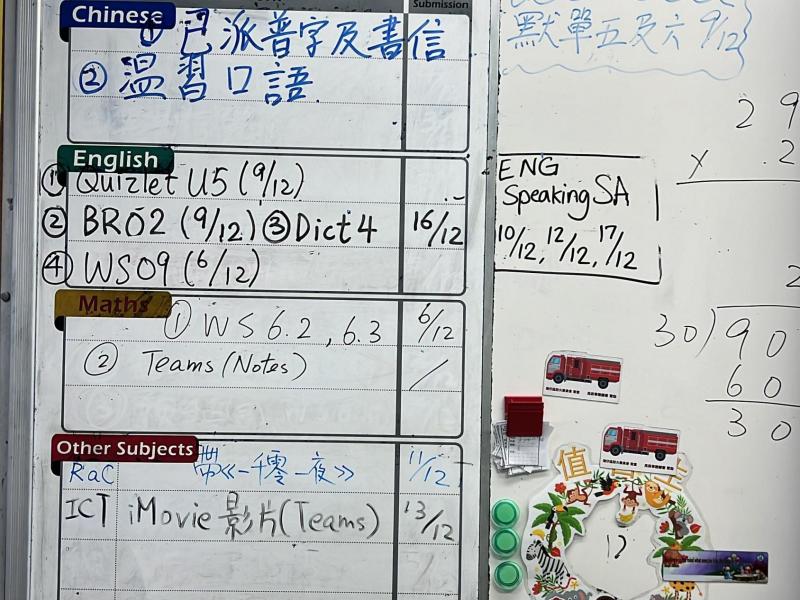 Submission
Chinese
① 已派普字及書信
② 溫習口語
English
① Quizlet U5 (9/12)
② BR02 (9/12) ③ Dict 4 16/12
④ WS09 (6/12)
Maths
① WS 6.2, 6.3 6/12
② Teams (Notes) /
Other Subjects
RaC 帶《一千零一夜》 11/12
ICT iMovie 影片(Teams) 13/12
默單五及六 9/12
ENG
Speaking SA
10/12, 12/12, 17/12
2 9
x .2
2
30)90
60
30
值
17